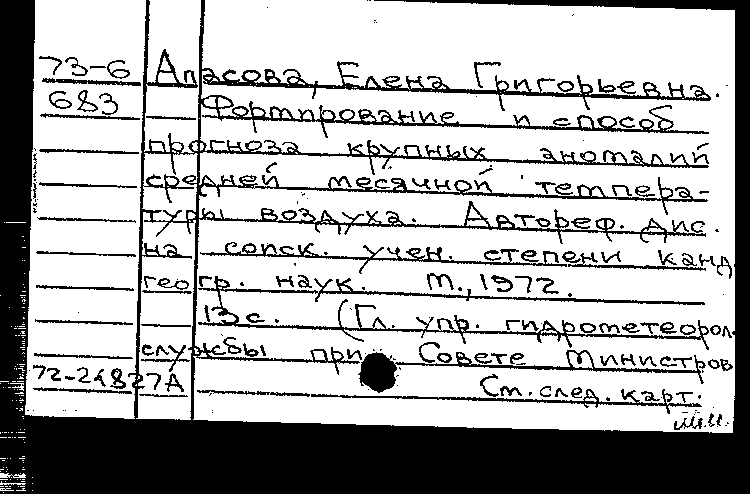 73-6 Апасова, Елена Григорьевна.
683 Формирование и способ
прогноза крупных аномалий
средней месячной темпера-
туры воздуха. Автореф. дис.
на соиск. учен. степени канд.
геогр. наук. М., 1972.
13 с. (Гл. упр. гидрометеорол.
службы при Совете Министров
72-24827А См. след. карт.